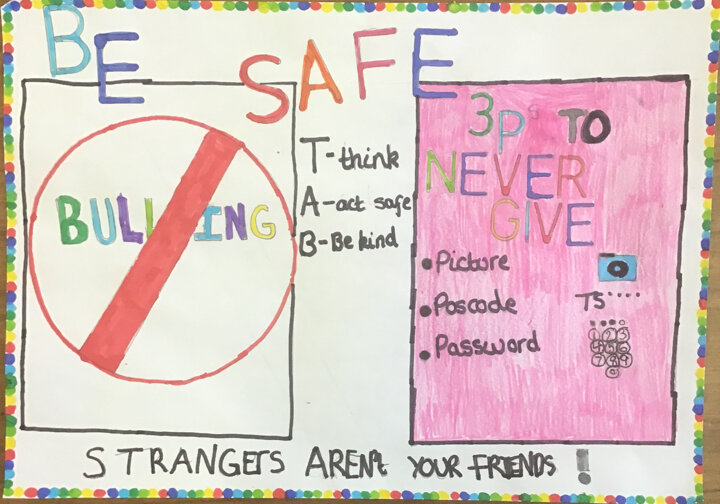 BE SAFE
BULLYING
T-think
A-act safe
B-Be kind
3P's TO
NEVER
GIVE
• Picture
• Poscode TS····
• Password
1 2 3
4 5 6
7 8 9
0
STRANGErs AREN't YOUR FRIENDS !